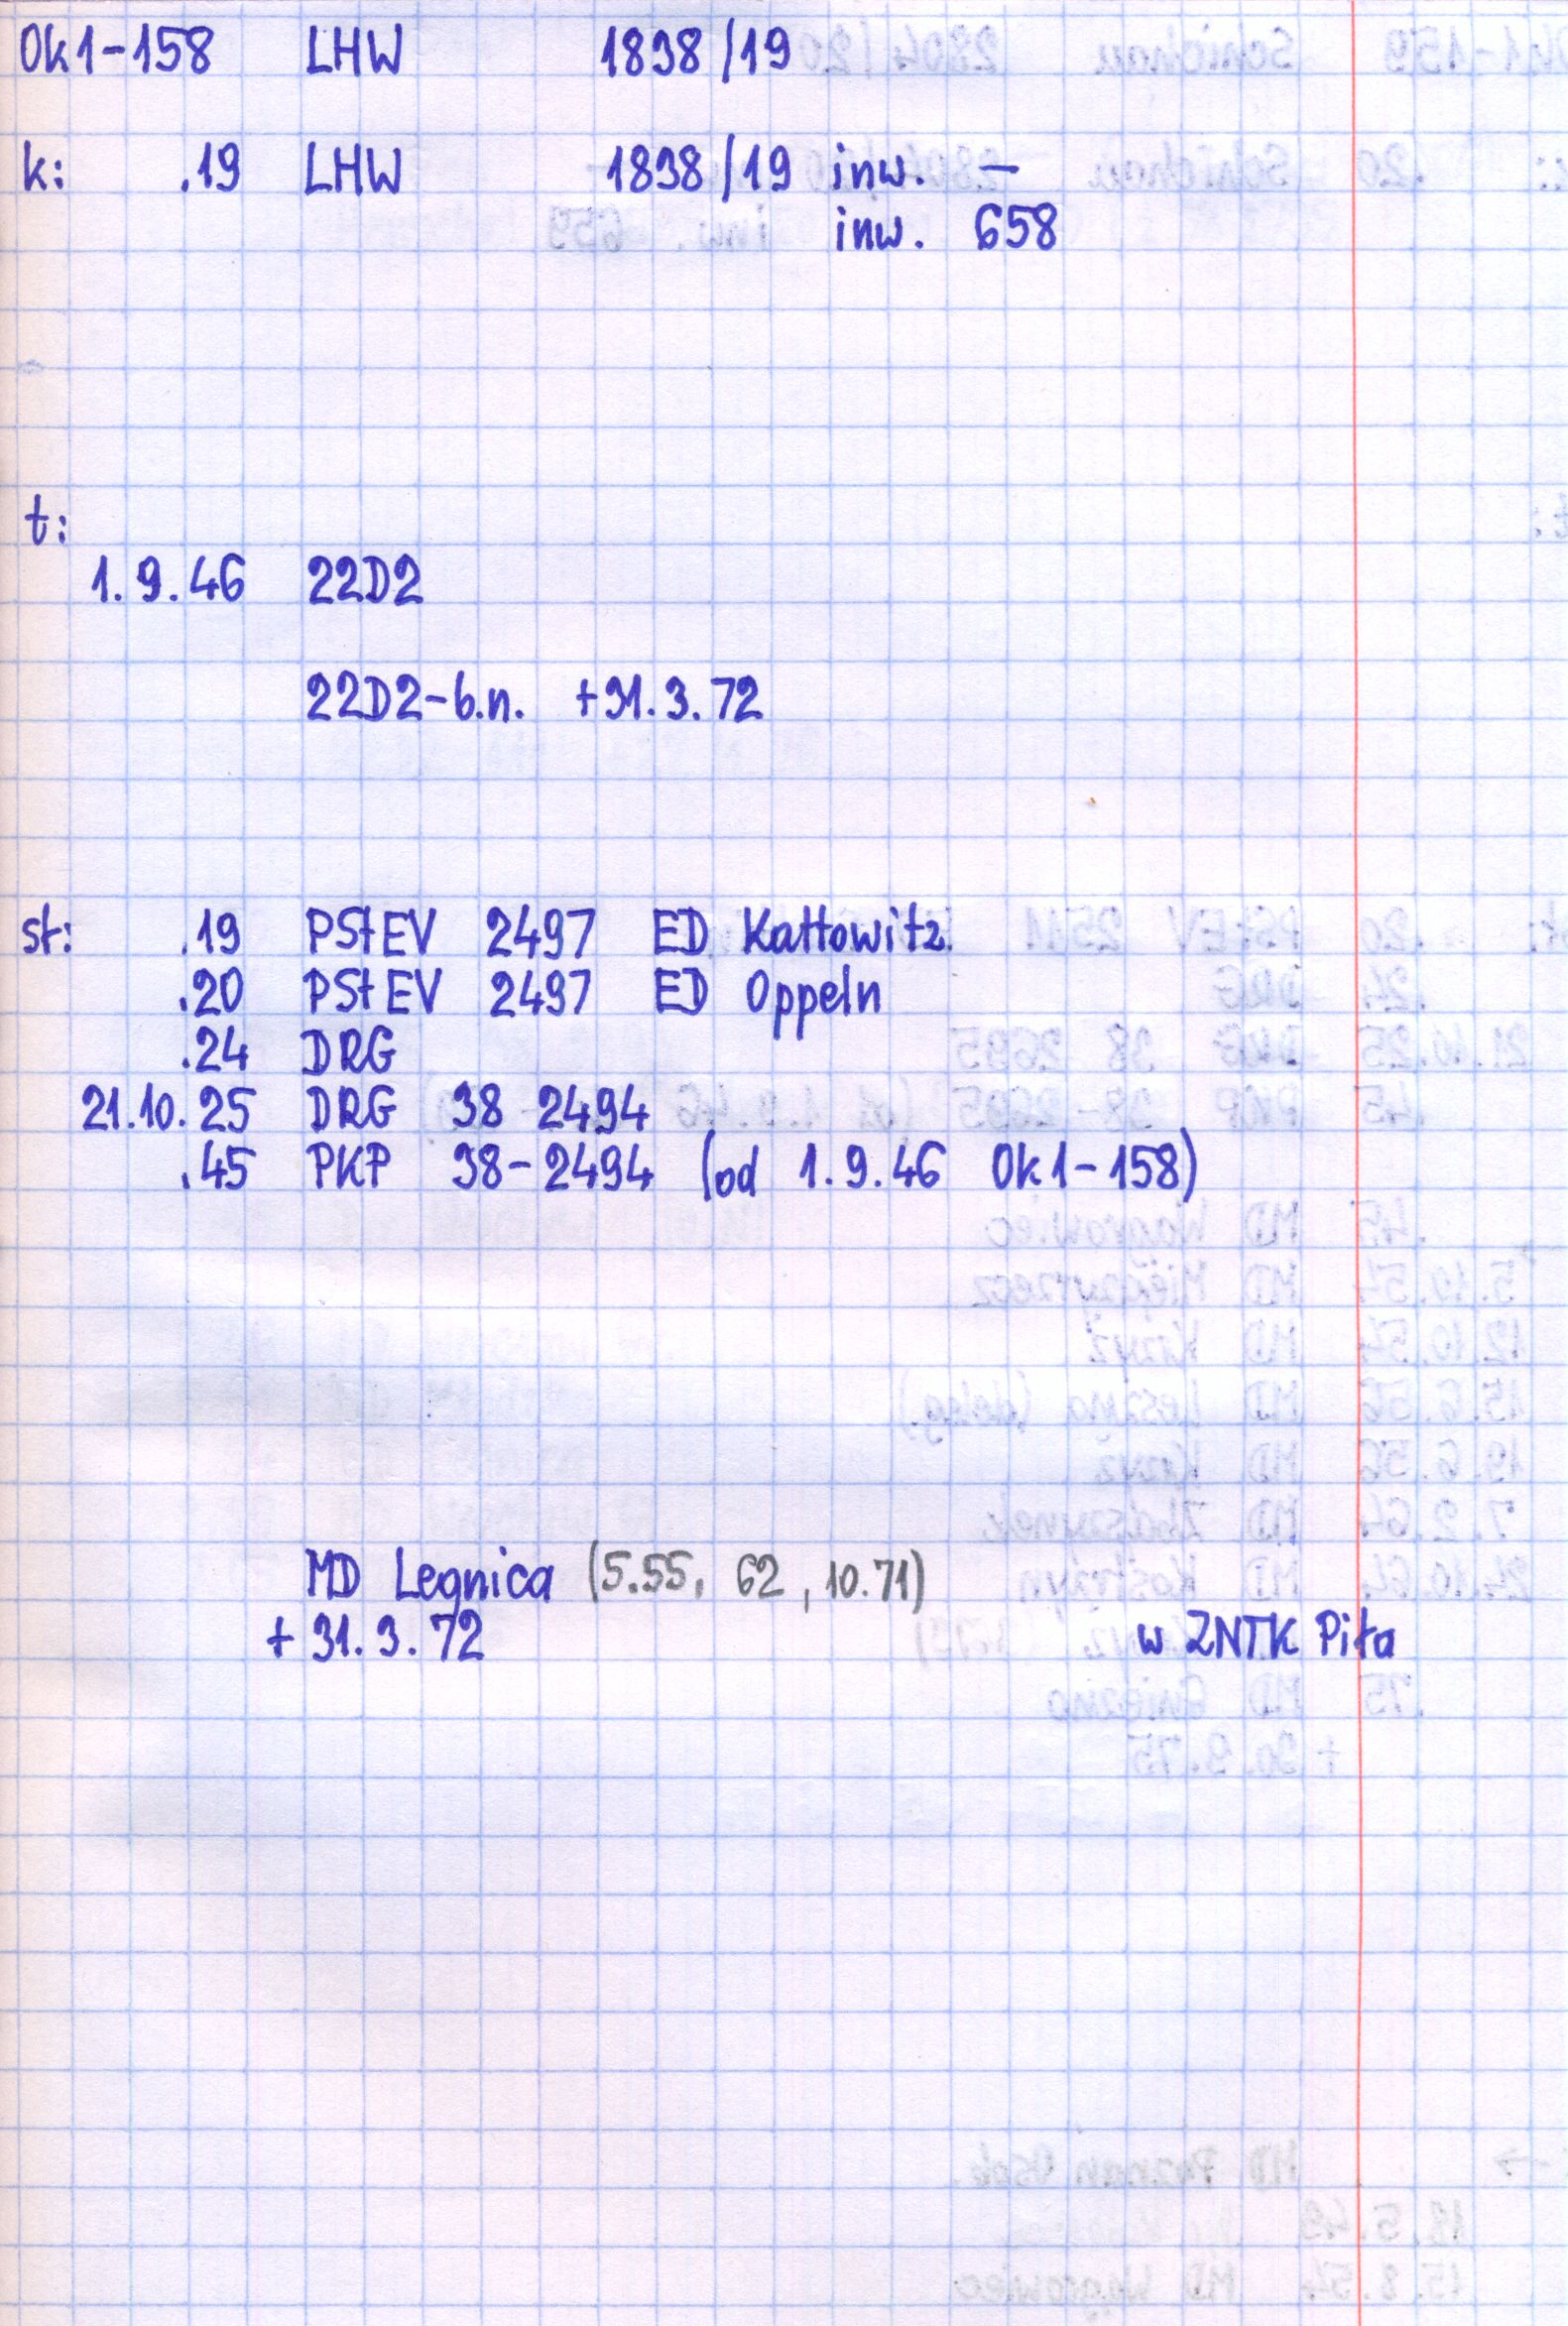 Ok1-158 LHW 1838/19
k: .19 LHW 1838/19 inw. —
inw. 658
t:
1.9.46 22D2
22D2-b.n. +31.3.72
st: .19 PStEV 2497 ED Kattowitz
.20 PStEV 2497 ED Oppeln
.24 DRG
21.10.25 DRG 38 2494
.45 PKP 38-2494 (od 1.9.46 Ok1-158)
MD Legnica (5.55, 62, 10.71)
+ 31.3.72 w ZNTK Piła